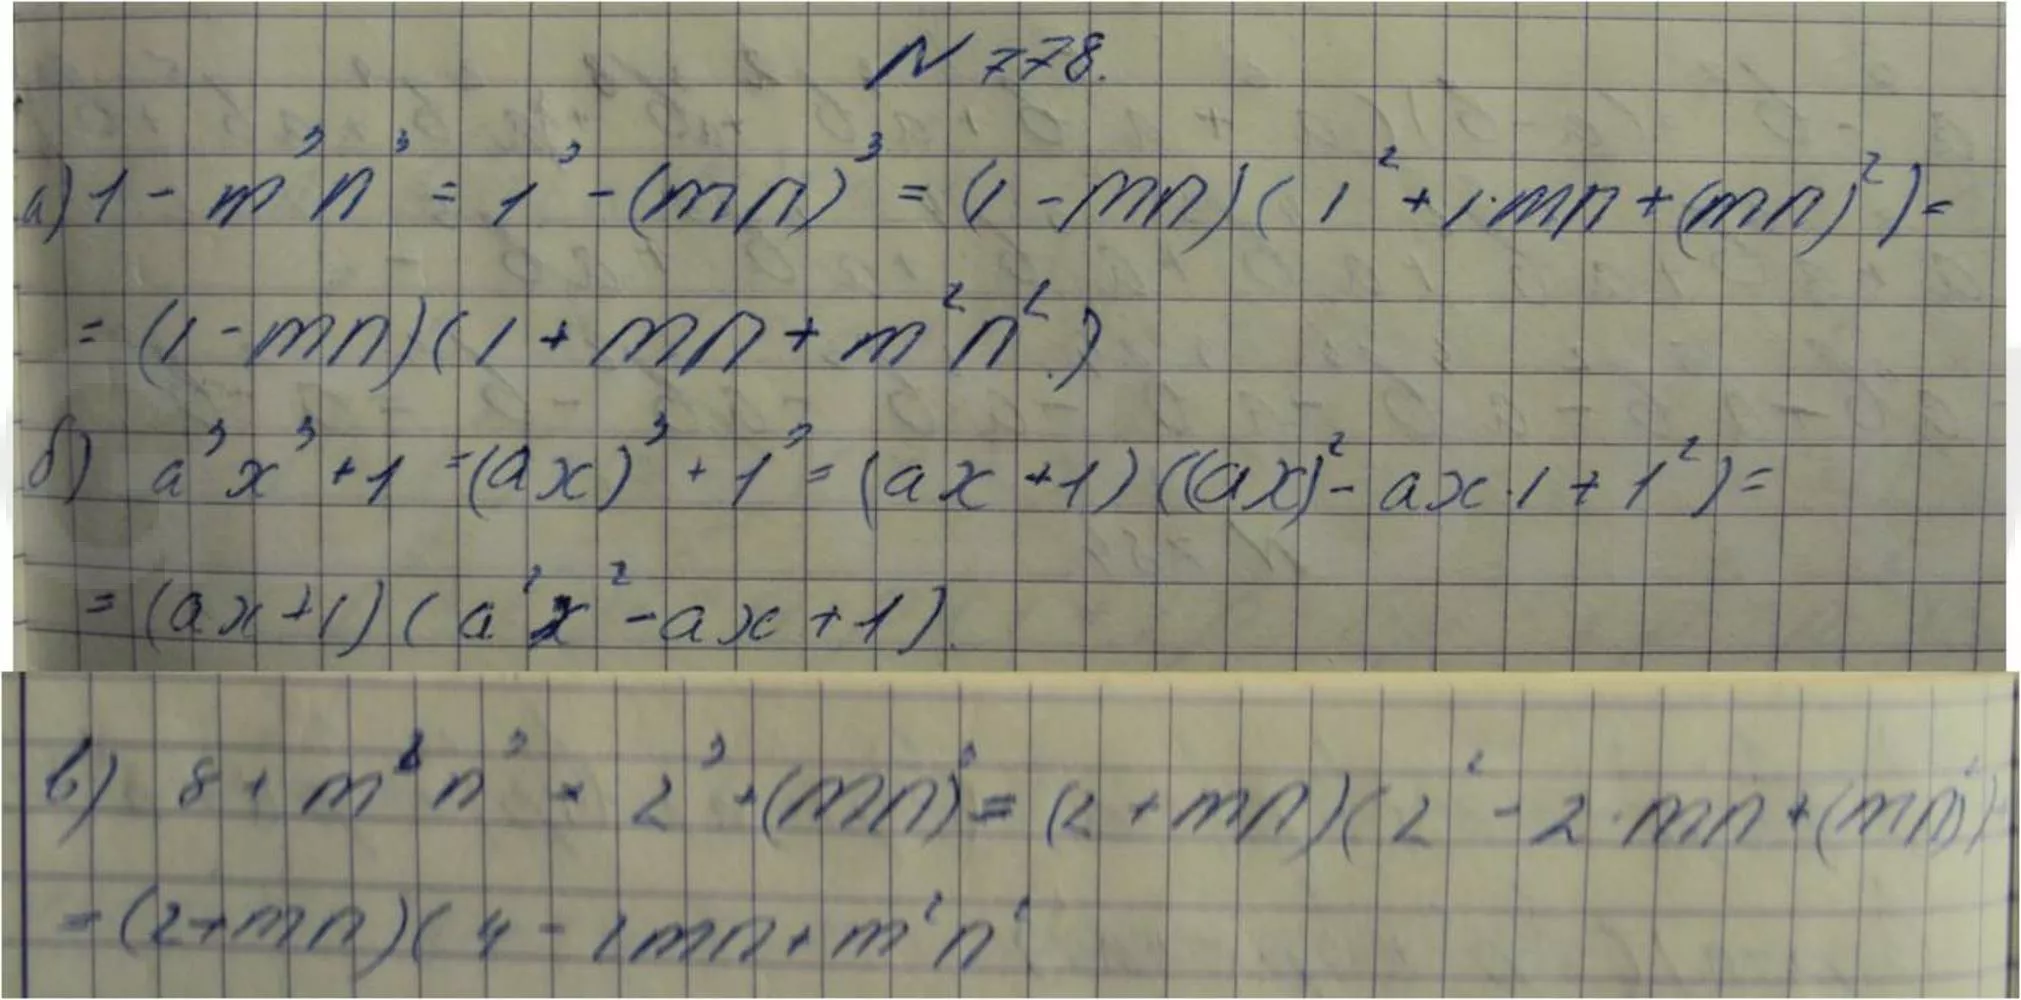 N 778.
а) 1 - m³n³ = 1³ - (mn)³ = (1 - mn)(1² + 1·mn + (mn)²) =
= (1 - mn)(1 + mn + m²n².)
б) a³x³ + 1 = (ax)³ + 1³ = (ax + 1)((ax)² - ax·1 + 1²) =
= (ax + 1)(a²x² - ax + 1).
в) 8 + m³n³ = 2³ + (mn)³ = (2 + mn)(2² - 2·mn + (mn)²) =
= (2 + mn)(4 - 2mn + m²n²